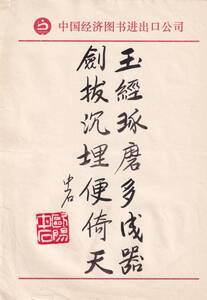 中国经济图书进出口公司
玉經琢磨多成器
劍拔沉埋便倚天
中石
歐陽中石